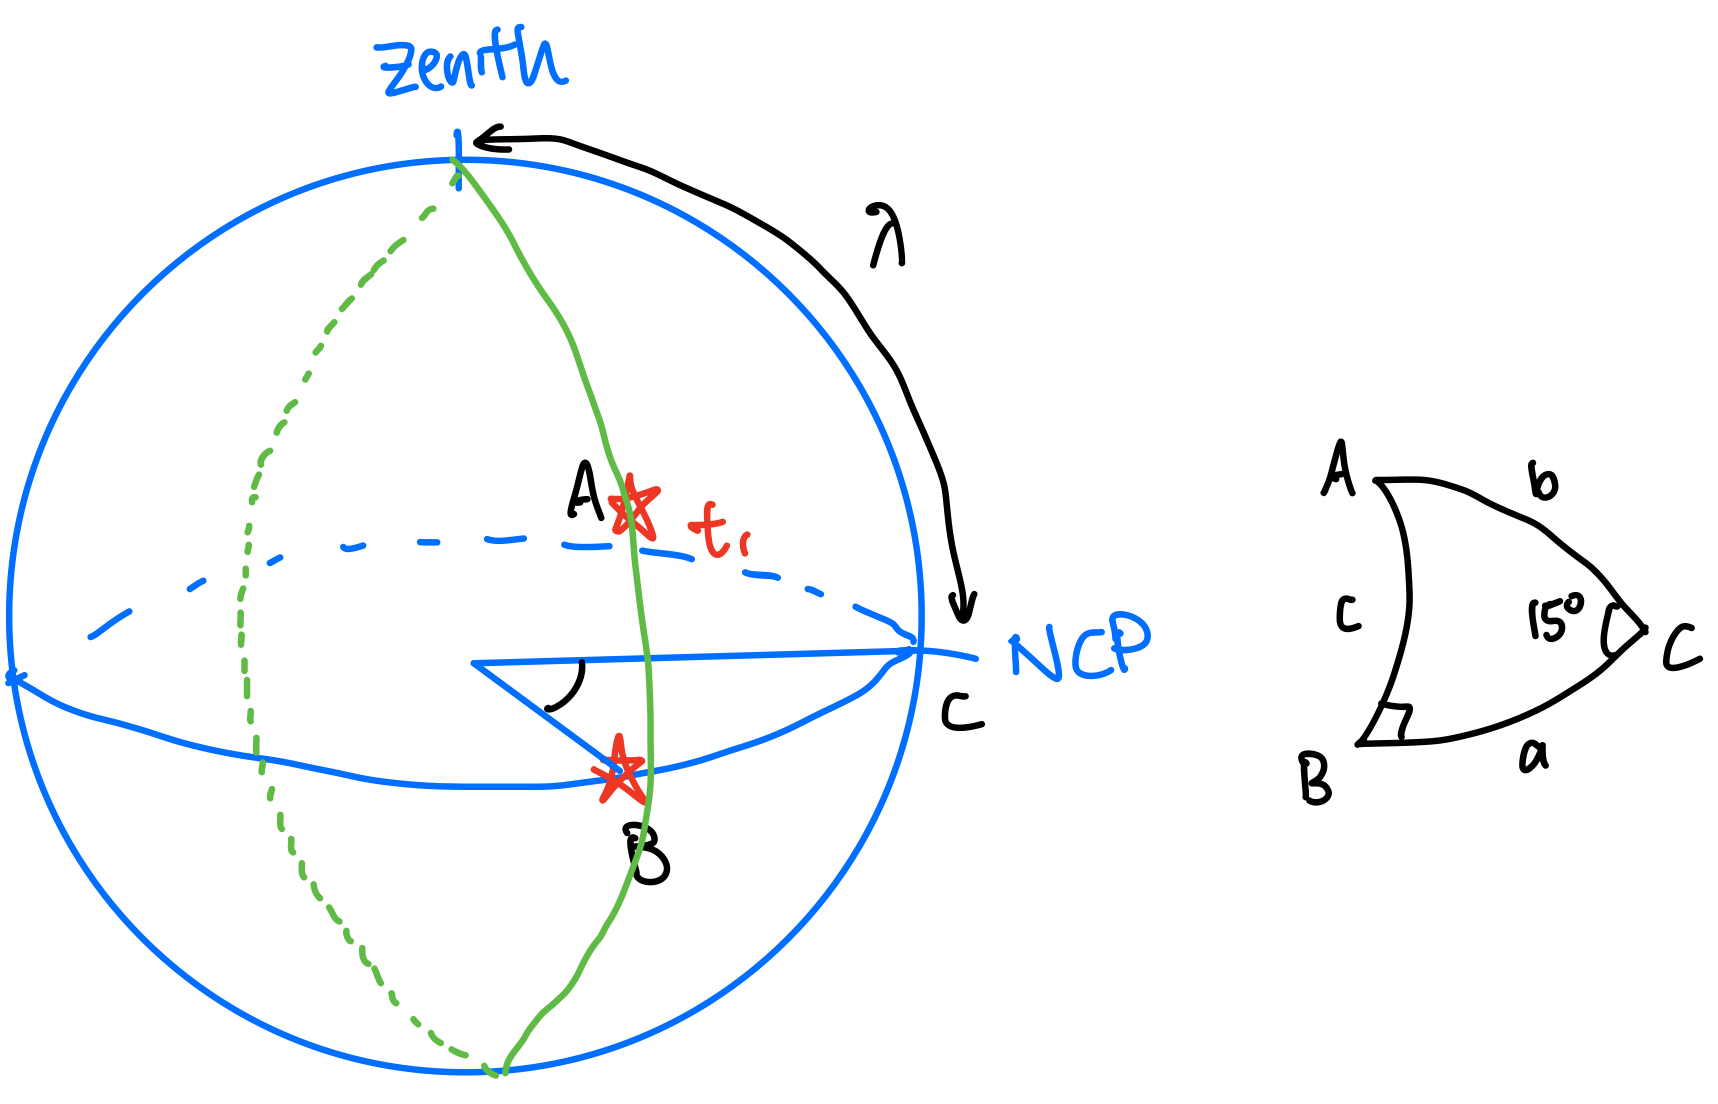 Zenith
λ
A
t₁
NCP
C
B
A
b
c
15°
C
B
a